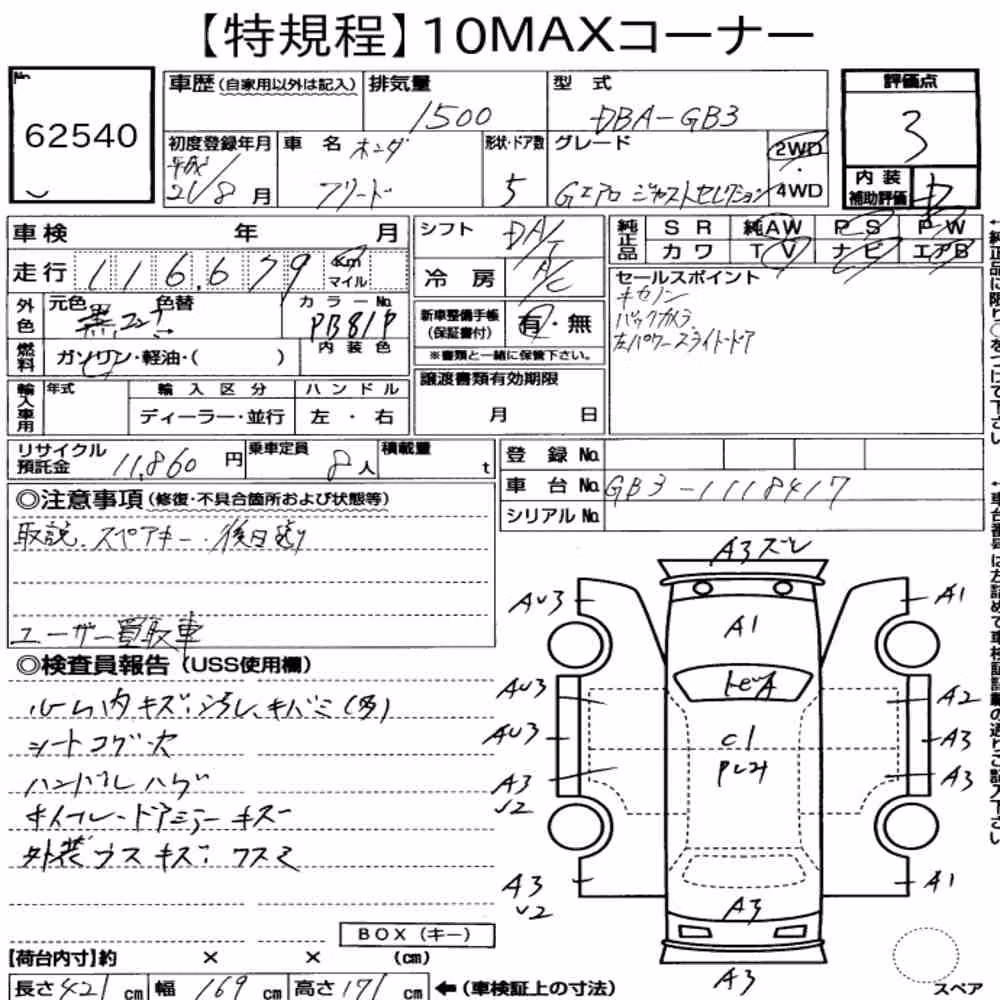 【特規程】10MAXコーナー
No.
62540
車歴 (自家用以外は記入)
排気量
1500
型式
DBA-GB3
評価点
3
初度登録年月
平成
21/8月
車名
ホンダ
フリード
形状・ドア数
5
グレード
Gエアロ ジャストセレクション
2WD
・
4WD
内装
補助評価
D
車検 年 月
シフト
DAT
純正品
SR 純AW PS PW
カワ TV ナビ エアB
走行 116,679 km
マイル
冷房
A/C
セールスポイント
キセノン
バックカメラ
左パワースライドドア
外色
元色 色替
黒
カラーNo.
PB81P
新車整備手帳
(保証書付)
有・無
※書類と一緒に保管下さい。
燃料
ガソリン・軽油・( )
内装色
輸入車用
年式
輸入区分
ハンドル
ディーラー・並行
左・右
譲渡書類有効期限
月 日
リサイクル
預託金
11,860円
乗車定員
8人
積載量
t
登録No.
車台No. GB3-1118417
シリアルNo.
◎注意事項 (修復・不具合箇所および状態等)
取説.スペアキー.後日送り
ユーザー買取車
◎検査員報告 (USS使用欄)
ルーム内キズ.汚レ.キバミ(多)
シートコゲ穴
ハンドルハゲ
キーフレードアミラーキズ
外装ウスキズ.ワスミ
A3ズレ
AU3
A1
A1
AU3
A2
AU3
C1
A3
A3
U2
A3
A3
U2
A3
A1
A3
BOX (キー)
【荷台内寸】約 × × (cm)
長さ421cm 幅169cm 高さ171cm ←(車検証上の寸法)
スペア
←純正品に限り○をつけて下さい
←車台番号は左詰めで車検証記載の通りご記入下さい